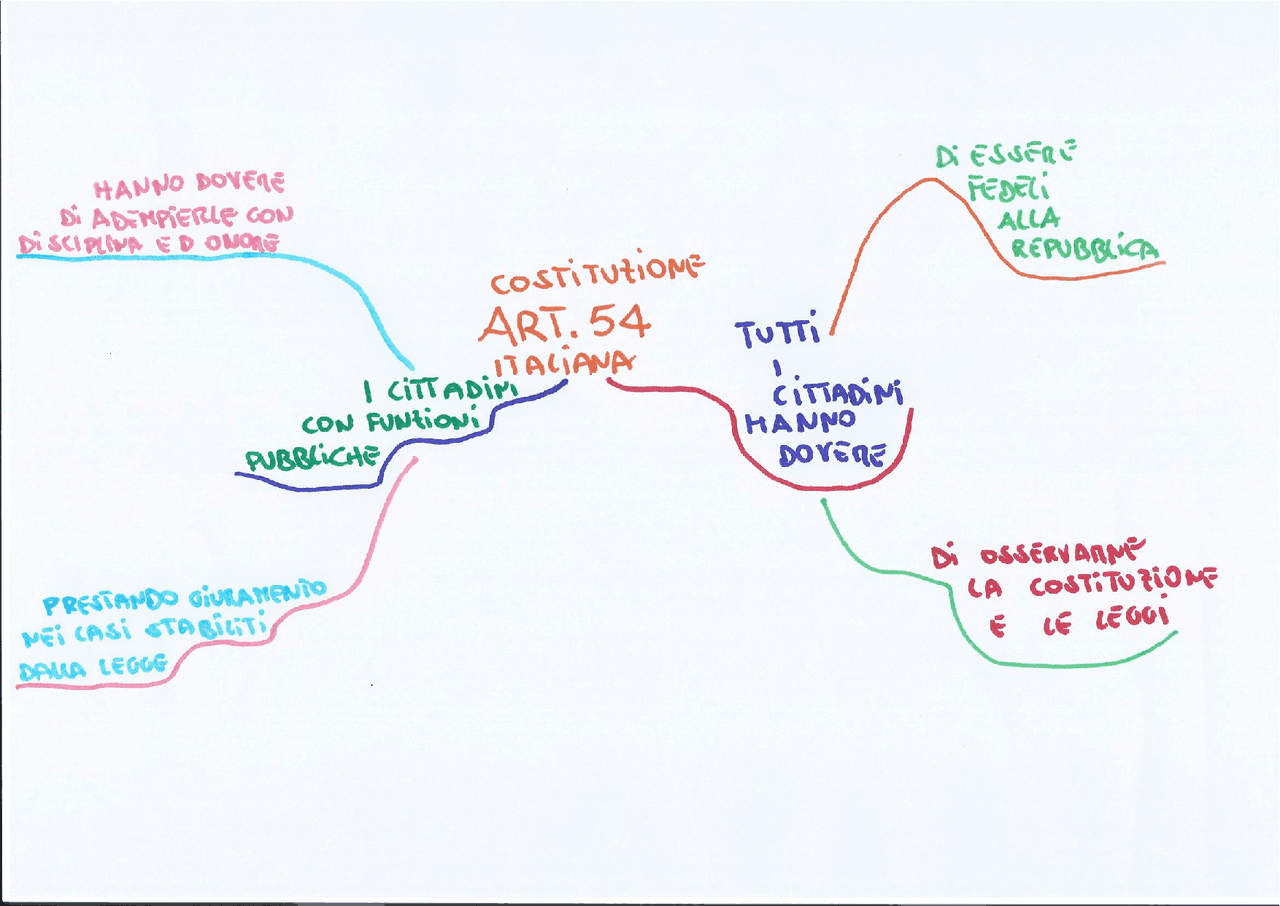 COSTITUZIONE
ART. 54
ITALIANA
TUTTI
I
CITTADINI
HANNO
DOVERE
Di ESSERE
FEDELI
ALLA
REPUBBLICA
Di OSSERVARNE
LA COSTITUZIONE
E LE LEGGI
I CITTADINI
CON FUNZIONI
PUBBLICHE
HANNO DOVERE
Di ADEMPIERLE CON
DISCIPLINA ED ONORE
PRESTANDO GIURAMENTO
NEI CASI STABILITI
DALLA LEGGE